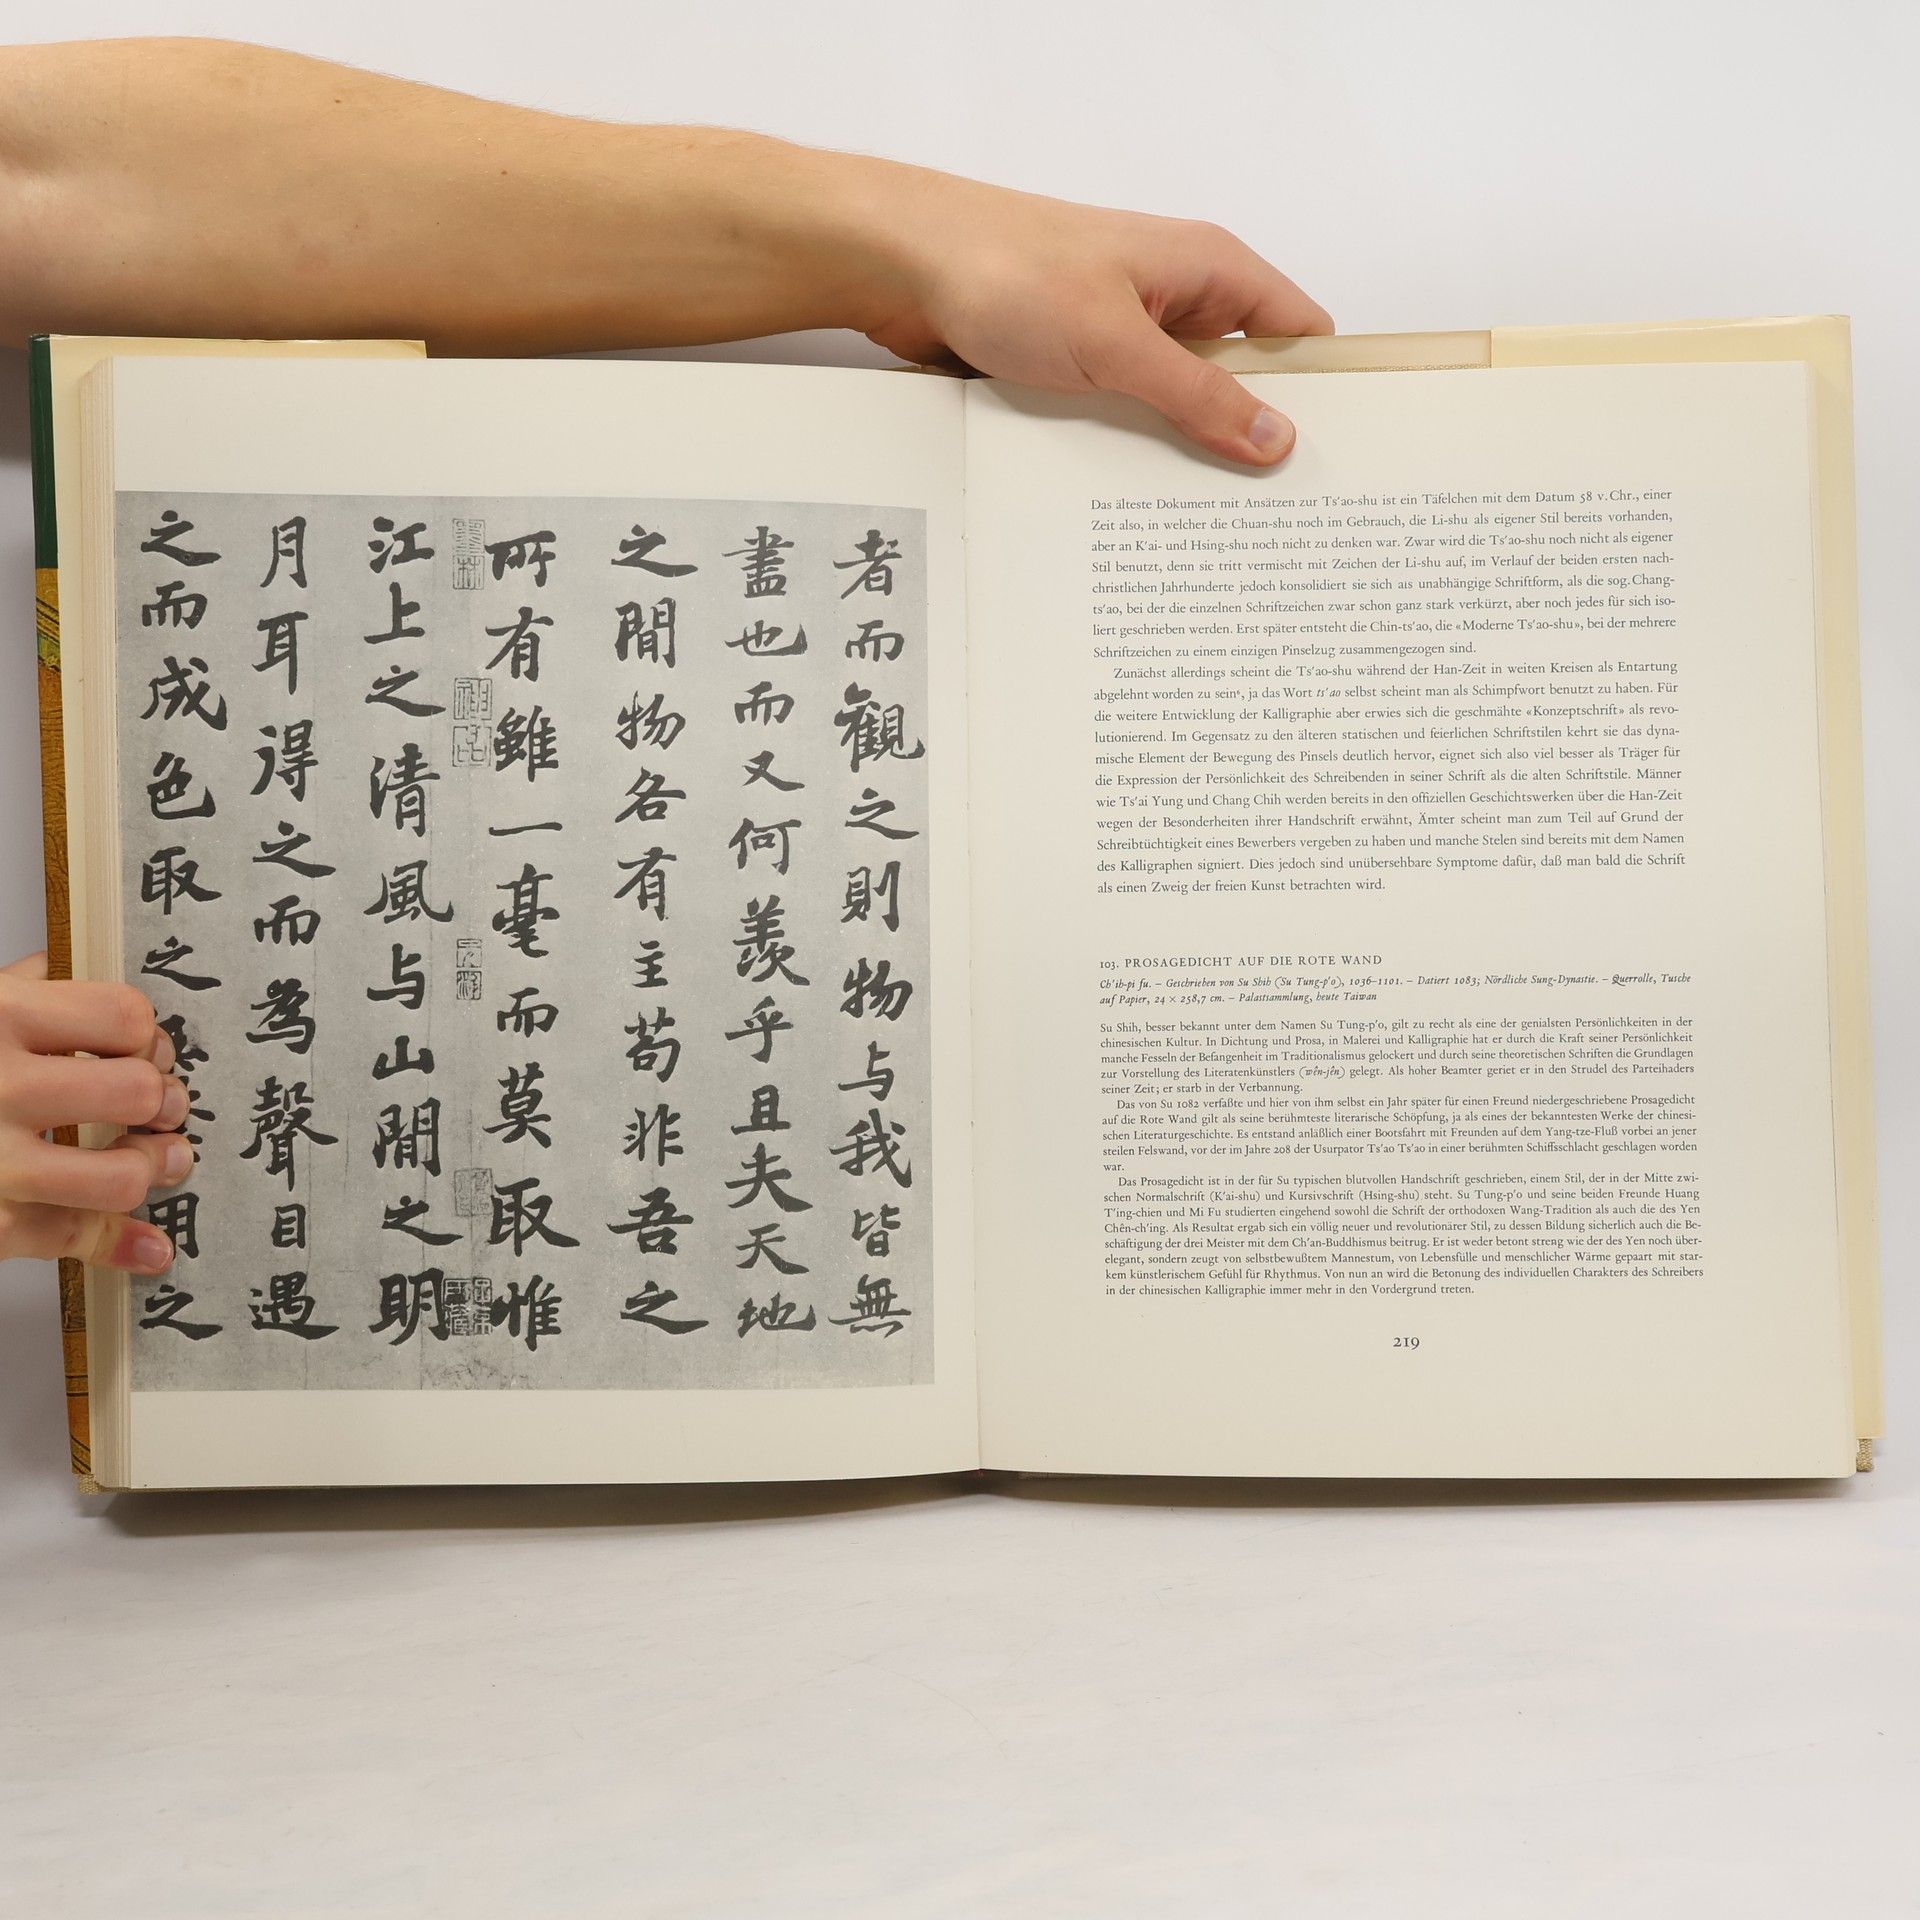 者而觀之則物与我皆無
盡也而又何羨乎且夫天地
之間物各有主苟非吾之
所有雖一毫而莫取惟
江上之清風与山間之明
月耳得之而為聲目遇
之而成色取之用之
Das älteste Dokument mit Ansätzen zur Ts'ao-shu ist ein Täfelchen mit dem Datum 58 v. Chr., einer
Zeit also, in welcher die Chuan-shu noch im Gebrauch, die Li-shu als eigener Stil bereits vorhanden,
aber an K'ai- und Hsing-shu noch nicht zu denken war. Zwar wird die Ts'ao-shu noch nicht als eigener
Stil benutzt, denn sie tritt vermischt mit Zeichen der Li-shu auf, im Verlauf der beiden ersten nach-
christlichen Jahrhunderte jedoch konsolidiert sie sich als unabhängige Schriftform, als die sog. Chang-
ts'ao, bei der die einzelnen Schriftzeichen zwar schon ganz stark verkürzt, aber noch jedes für sich iso-
liert geschrieben werden. Erst später entsteht die Chin-ts'ao, die «Moderne Ts'ao-shu», bei der mehrere
Schriftzeichen zu einem einzigen Pinselzug zusammengezogen sind.
Zunächst allerdings scheint die Ts'ao-shu während der Han-Zeit in weiten Kreisen als Entartung
abgelehnt worden zu sein⁶, ja das Wort ts'ao selbst scheint man als Schimpfwort benutzt zu haben. Für
die weitere Entwicklung der Kalligraphie aber erwies sich die geschmähte «Konzeptschrift» als revo-
lutionierend. Im Gegensatz zu den älteren statischen und feierlichen Schriftstilen kehrt sie das dyna-
mische Element der Bewegung des Pinsels deutlich hervor, eignet sich also viel besser als Träger für
die Expression der Persönlichkeit des Schreibenden in seiner Schrift als die alten Schriftstile. Männer
wie Ts'ai Yung und Chang Chih werden bereits in den offiziellen Geschichtswerken über die Han-Zeit
wegen der Besonderheiten ihrer Handschrift erwähnt, Ämter scheint man zum Teil auf Grund der
Schreibtüchtigkeit eines Bewerbers vergeben zu haben und manche Stelen sind bereits mit dem Namen
des Kalligraphen signiert. Dies jedoch sind unübersehbare Symptome dafür, daß man bald die Schrift
als einen Zweig der freien Kunst betrachten wird.
103. PROSAGEDICHT AUF DIE ROTE WAND
Ch'ih-pi fu. – Geschrieben von Su Shih (Su Tung-p'o), 1036–1101. – Datiert 1083; Nördliche Sung-Dynastie. – Querrolle, Tusche
auf Papier, 24 × 258,7 cm. – Palastsammlung, heute Taiwan
Su Shih, besser bekannt unter dem Namen Su Tung-p'o, gilt zu recht als eine der genialsten Persönlichkeiten in der
chinesischen Kultur. In Dichtung und Prosa, in Malerei und Kalligraphie hat er durch die Kraft seiner Persönlichkeit
manche Fesseln der Befangenheit im Traditionalismus gelockert und durch seine theoretischen Schriften die Grundlagen
zur Vorstellung des Literatenkünstlers (wên-jên) gelegt. Als hoher Beamter geriet er in den Strudel des Parteihaders
seiner Zeit; er starb in der Verbannung.
Das von Su 1082 verfaßte und hier von ihm selbst ein Jahr später für einen Freund niedergeschriebene Prosagedicht
auf die Rote Wand gilt als seine berühmteste literarische Schöpfung, ja als eines der bekanntesten Werke der chinesi-
schen Literaturgeschichte. Es entstand anläßlich einer Bootsfahrt mit Freunden auf dem Yang-tze-Fluß vorbei an jener
steilen Felswand, vor der im Jahre 208 der Usurpator Ts'ao Ts'ao in einer berühmten Schiffsschlacht geschlagen worden
war.
Das Prosagedicht ist in der für Su typischen blutvollen Handschrift geschrieben, einem Stil, der in der Mitte zwi-
schen Normalschrift (K'ai-shu) und Kursivschrift (Hsing-shu) steht. Su Tung-p'o und seine beiden Freunde Huang
T'ing-chien und Mi Fu studierten eingehend sowohl die Schrift der orthodoxen Wang-Tradition als auch die des Yen
Chên-ch'ing. Als Resultat ergab sich ein völlig neuer und revolutionärer Stil, zu dessen Bildung sicherlich auch die Be-
schäftigung der drei Meister mit dem Ch'an-Buddhismus beitrug. Er ist weder betont streng wie der des Yen noch über-
elegant, sondern zeugt von selbstbewußtem Mannestum, von Lebensfülle und menschlicher Wärme gepaart mit star-
kem künstlerischem Gefühl für Rhythmus. Von nun an wird die Betonung des individuellen Charakters des Schreibers
in der chinesischen Kalligraphie immer mehr in den Vordergrund treten.
219